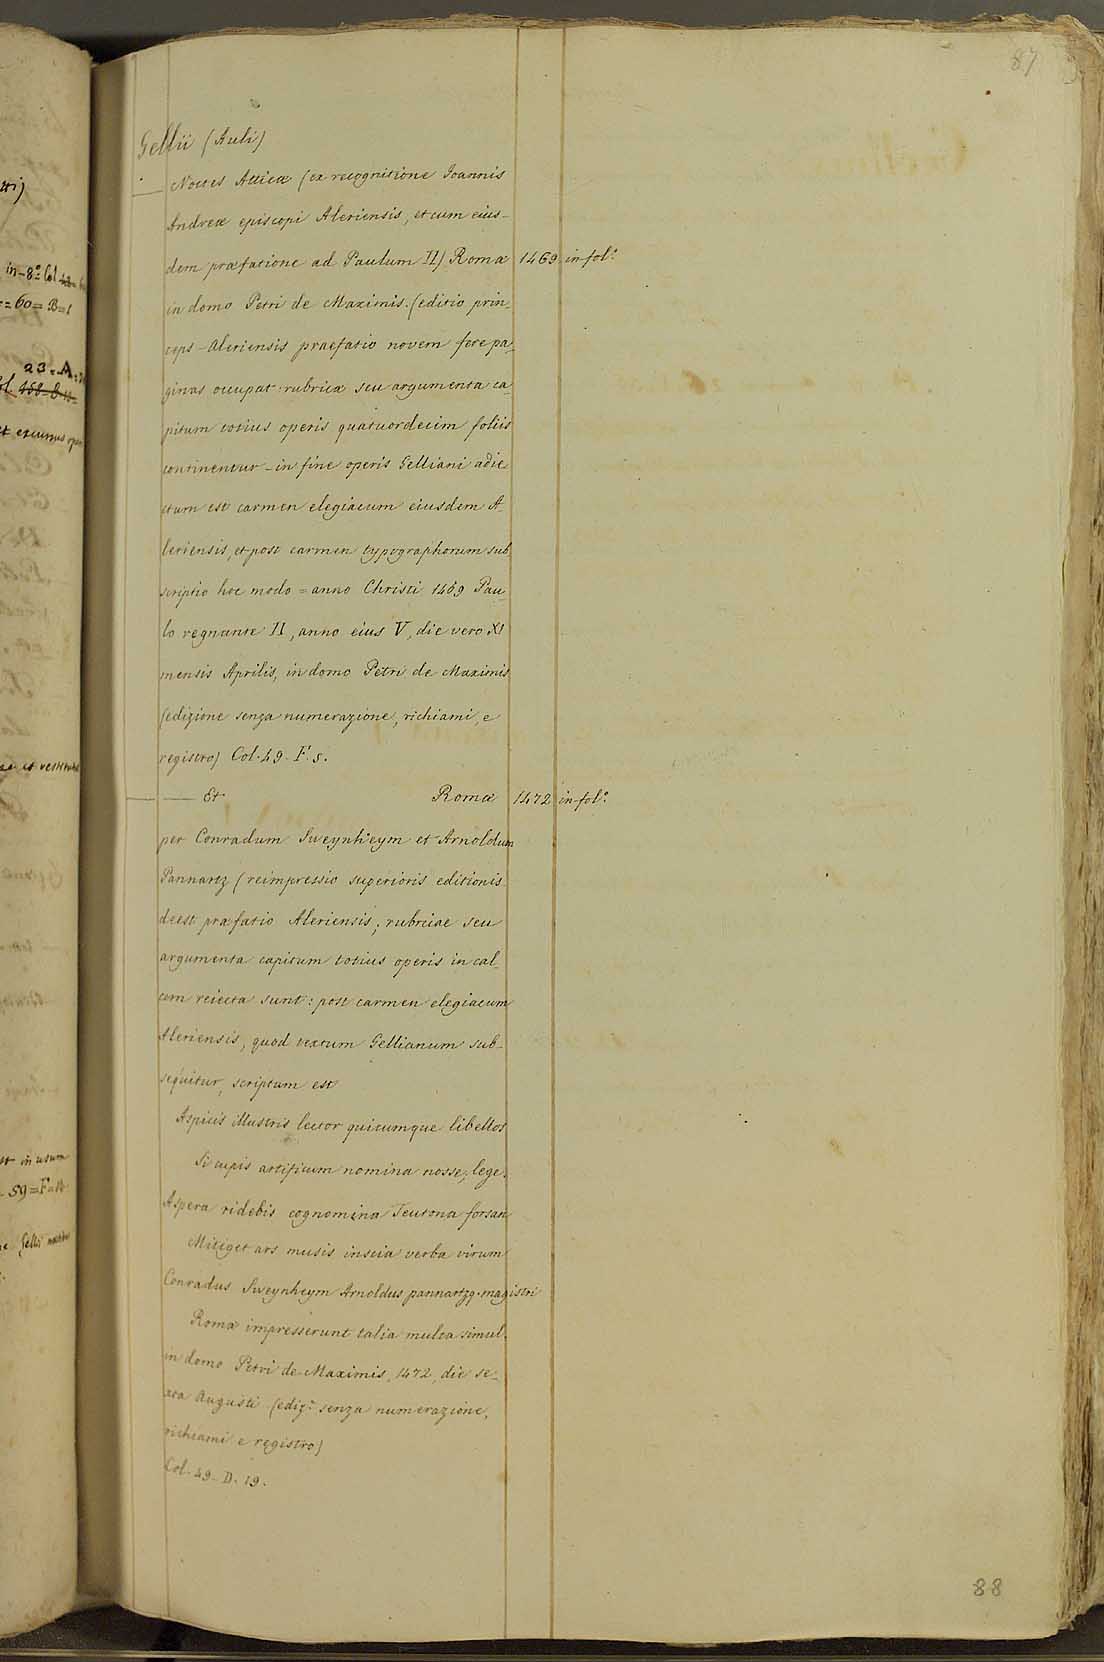 87
Gellii (Auli)
— Noctes Atticæ (ex recognitione Joannis
Andreæ episcopi Aleriensis, et cum eius-
dem præfatione ad Paulum II) Romæ 1469 in fol.°
in domo Petri de Maximis. (editio prin-
ceps - Aleriensis praefatio novem fere pa-
ginas occupat. rubricæ seu argumenta ca-
pitum totius operis quatuordecim foliis
continentur - in fine operis Gelliani adie
ctum est carmen elegiacum eiusdem A-
leriensis, et post carmen typographorum sub
scriptio hoc modo = anno Christi 1469 Pau-
lo regnante II, anno eius V, die vero XI
mensis Aprilis, in domo Petri de Maximis
(edizione senza numerazione, richiami, e
registro) Col. 49. F. 5.
— — Et Romæ 1472 in fol.°
per Conradum Sweynheym et Arnoldum
Pannartz (reimpressio superioris editionis.
deest præfatio Aleriensis; rubricae seu
argumenta capitum totius operis in cal-
cem reiecta sunt: post carmen elegiacum
Aleriensis, quod textum Gellianum sub-
sequitur, scriptum est
Aspicis illustris lector quicumque libellos
Si cupis artificum nomina nosse, lege.
Aspera ridebis cognomina Teutona forsan
Mitiget ars musis inscia verba virum
Conradus Sweynheym Arnoldus pannartzq. magistri
Romæ impresserunt talia multa simul.
in domo Petri de Maximis, 1472, die se-
xta Augusti (ediz.e senza numerazione,
richiami e registro)
Col. 49. D. 19.
88
in-8.° Col
60 = B = 1
23. A.
et in usum
59 = F